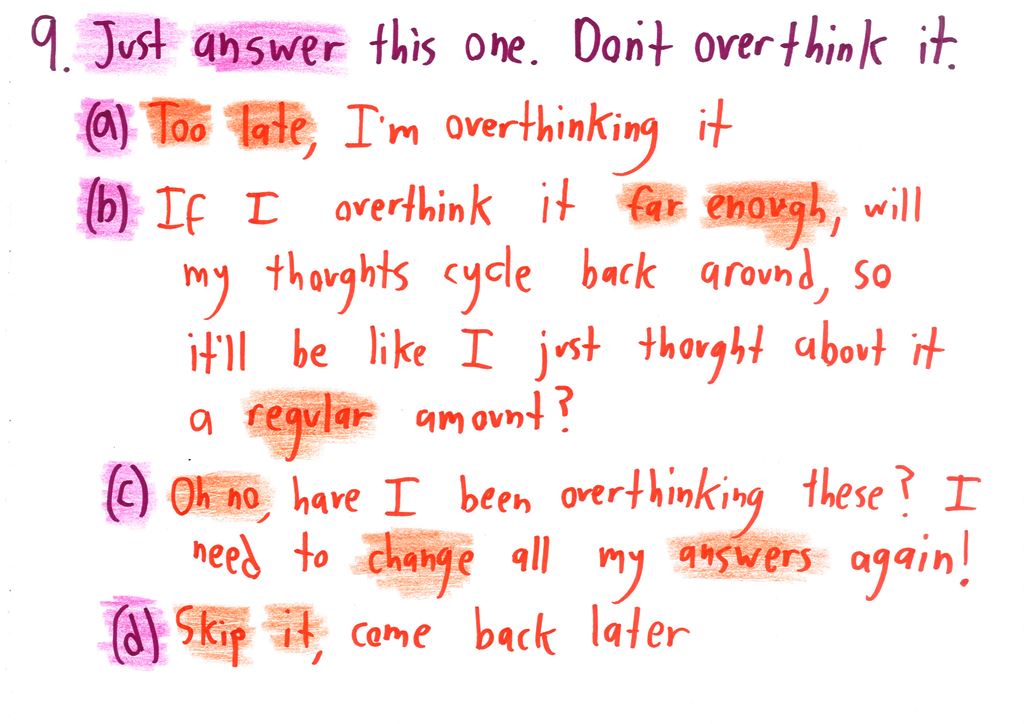 9. Just answer this one. Don't overthink it.
(a) Too late, I'm overthinking it
(b) If I overthink it far enough, will
my thoughts cycle back around, so
it'll be like I just thought about it
a regular amount?
(c) Oh no, have I been overthinking these? I
need to change all my answers again!
(d) Skip it, come back later